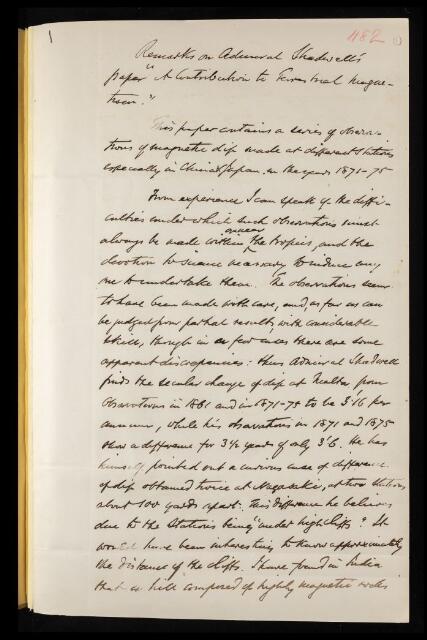 1
482
(1)
Remarks on Admiral Shadwell's
paper "A Contribution to Terrestrial Magne-
tism."
This paper contains a series of observa-
tions of magnetic dip made at different stations
especially in China & Japan in the years 1871-75
From experience I can speak of the diffi-
culties under which such observations must
always be made within or near the tropics, and the
devotion to science necessary to induce any
one to undertake them. The observations seem
to have been made with care, and, as far as can
be judged from partial results, with considerable
skill, though in a few cases there are some
apparent discrepancies: thus Admiral Shadwell
finds the secular change of dip at Malta, from
observations in 1861 and in 1871-75 to be 3'.16 per
annum, while his observations in 1871 and 1875
show a difference for 3½ years of only 3'.6. He has
himself pointed out a curious case of difference
of dip obtained twice at Nagasaki, at two stations
about 100 yards apart. This difference he believes
due to the stations being "under high cliffs". It
would have been interesting to know approximately
the distance of the cliffs. I have found in India
that a hill composed of highly magnetic rocks